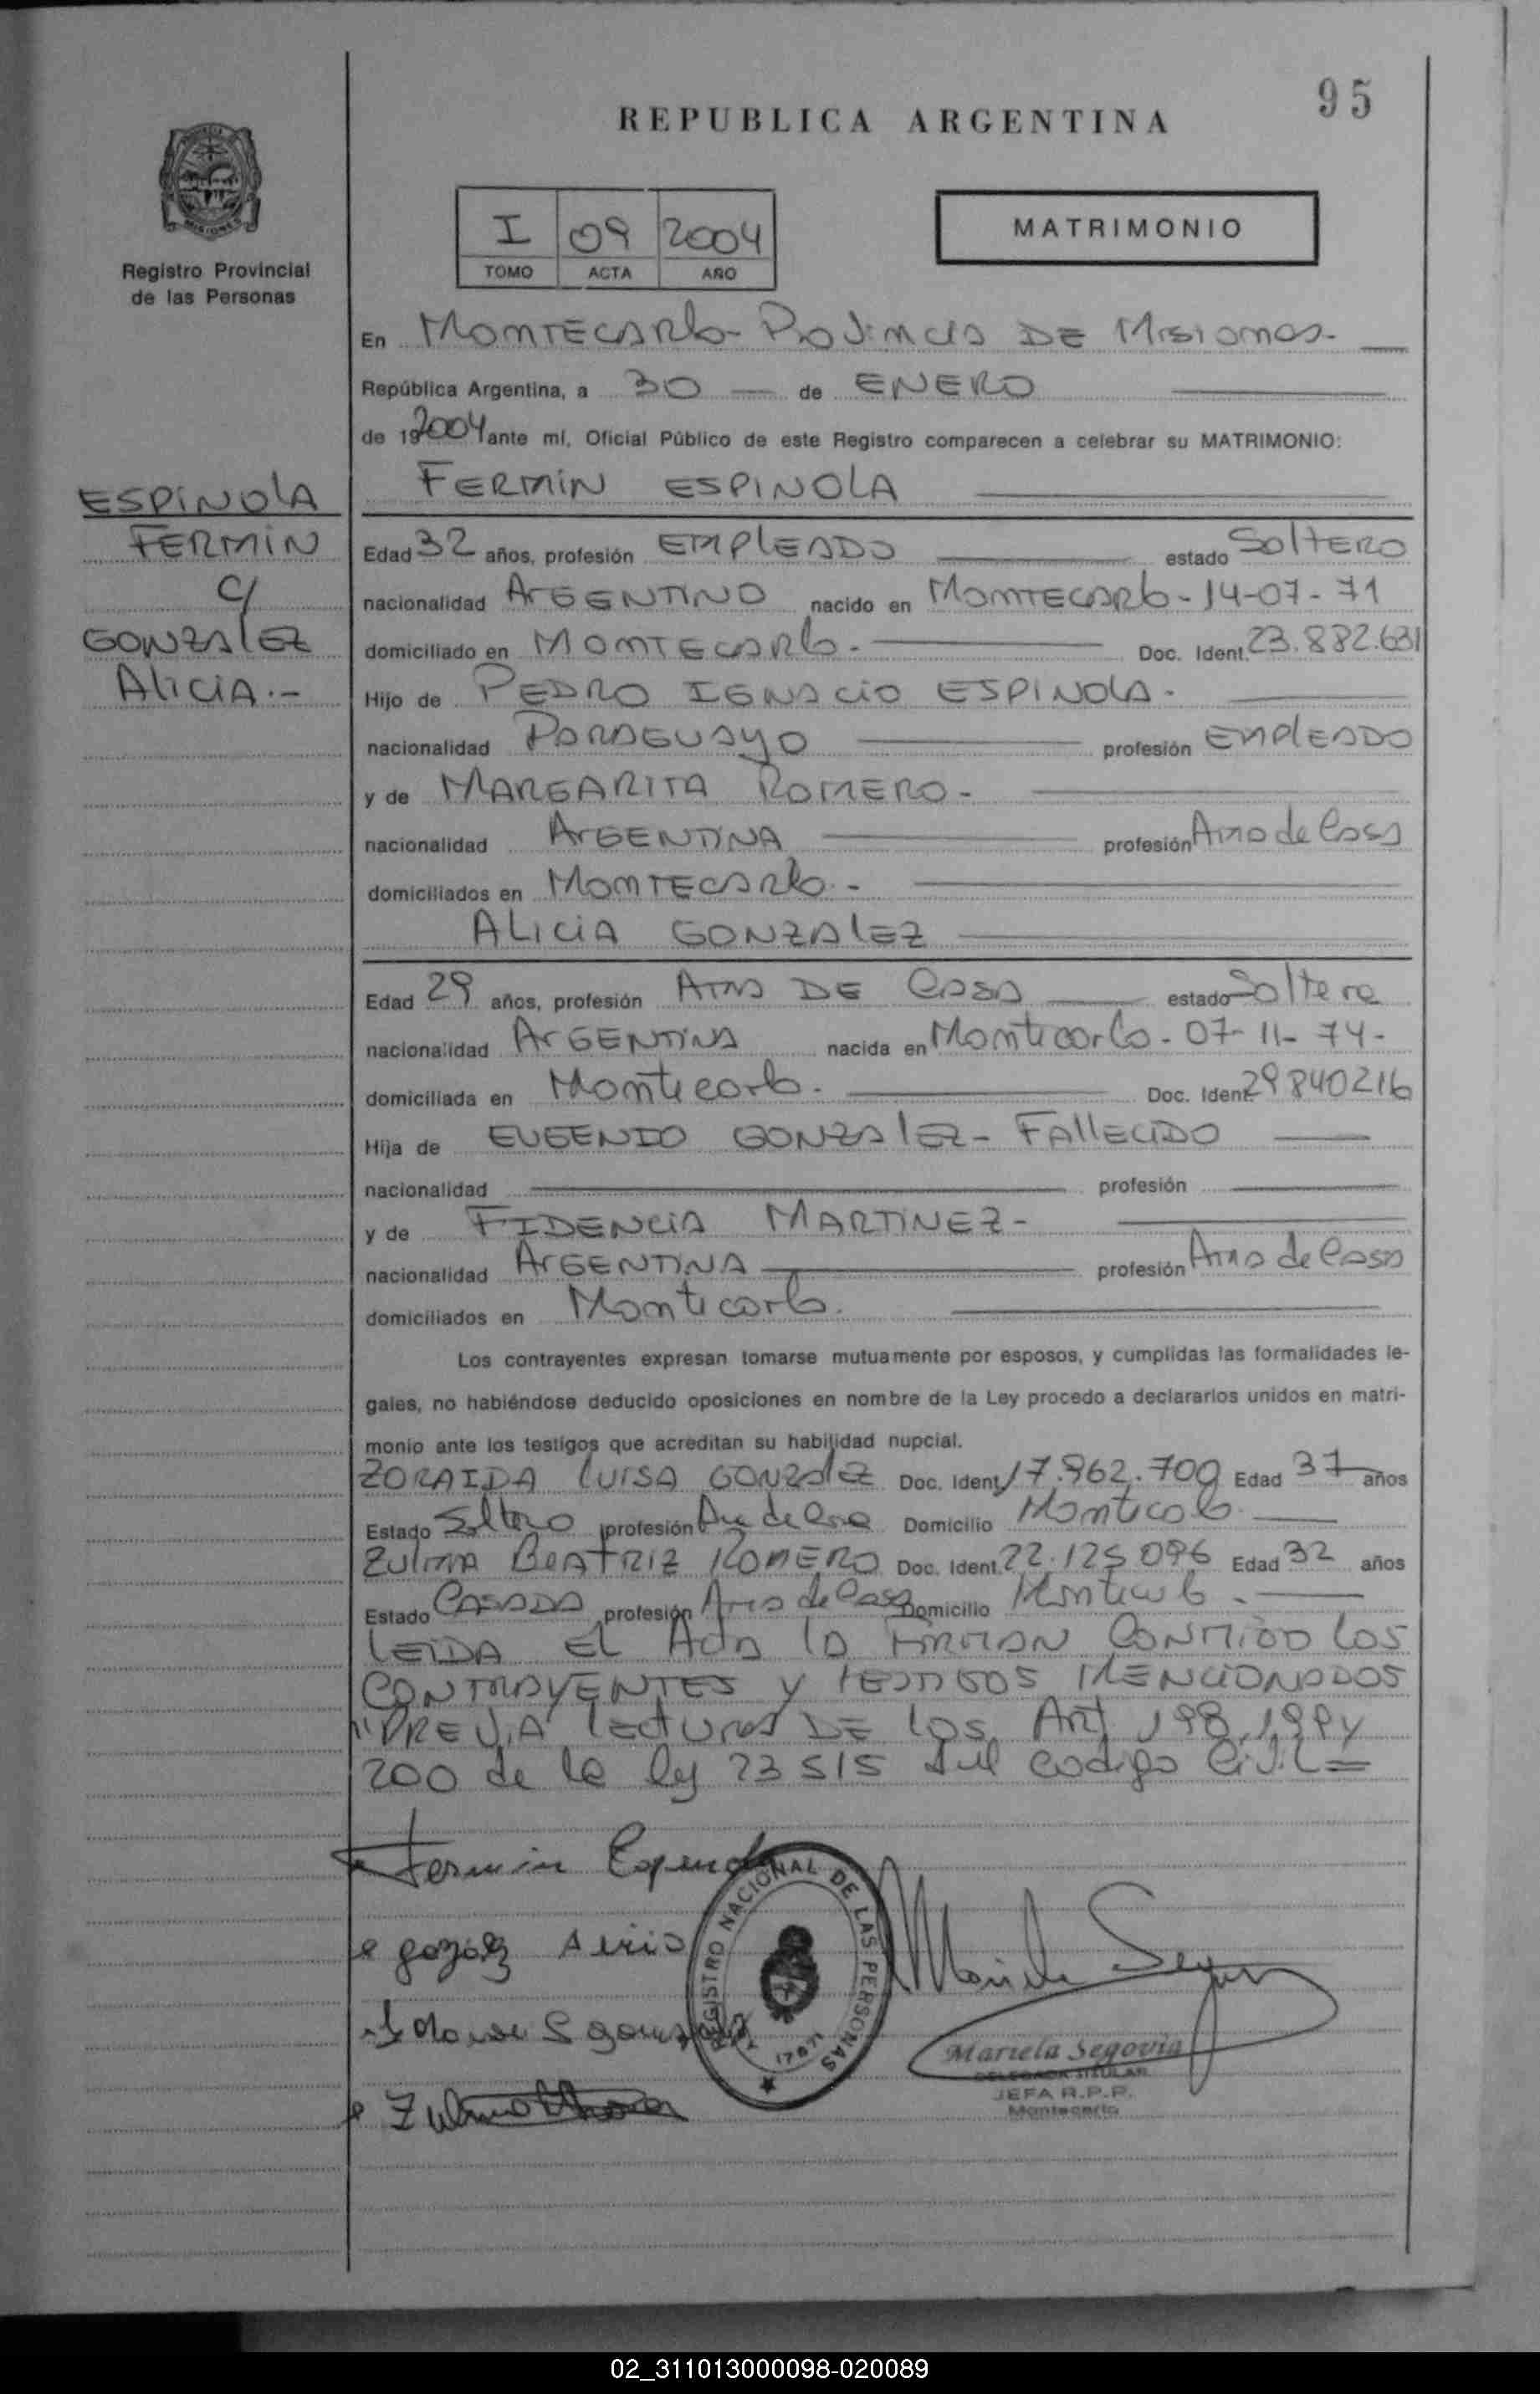 95
REPUBLICA ARGENTINA
I 09 2004
TOMO ACTA AÑO
MATRIMONIO
Registro Provincial
de las Personas
En MONTECARLO - PROVINCIA DE MISIONES.
República Argentina, a 30 de ENERO
de 19 2004 ante mí, Oficial Público de este Registro comparecen a celebrar su MATRIMONIO:
FERMIN ESPINOLA
ESPINOLA
FERMIN
C/
GONZALEZ
ALICIA.-
Edad 32 años, profesión EMPLEADO estado SOLTERO
nacionalidad ARGENTINO nacido en MONTECARLO - 14-07-71
domiciliado en MONTECARLO. Doc. Ident. 23.882.631
Hijo de PEDRO IGNACIO ESPINOLA.
nacionalidad PARAGUAYO profesión EMPLEADO
y de MARGARITA ROMERO -
nacionalidad ARGENTINA profesión Ama de Casa
domiciliados en MONTECARLO.-
ALICIA GONZALEZ
Edad 29 años, profesión AMA DE CASA estado Soltera
nacionalidad ARGENTINA nacida en Montecarlo - 07-11-74-
domiciliada en Montecarlo. Doc. Ident. 29840216
Hija de EUGENIO GONZALEZ - FALLECIDO
nacionalidad profesión
y de FIDENCIA MARTINEZ -
nacionalidad ARGENTINA profesión Ama de Casa
domiciliados en Montecarlo.
Los contrayentes expresan tomarse mutuamente por esposos, y cumplidas las formalidades le-
gales, no habiéndose deducido oposiciones en nombre de la Ley procedo a declararlos unidos en matri-
monio ante los testigos que acreditan su habilidad nupcial.
ZORAIDA LUISA GONZALEZ Doc. Ident. 17.962.700 Edad 37 años
Estado Soltero profesión Ama de Casa Domicilio Montecarlo
ZULMA BEATRIZ ROMERO Doc. Ident. 22.125.096 Edad 32 años
Estado CASADA profesión Ama de Casa Domicilio Montecarlo.
LEIDA EL Acta la FIRMAN CONMIGO LOS
CONTRAYENTES Y TESTIGOS MENCIONADOS
"PREVIA LECTURA DE LOS Art 198, 199 y
200 de la ley 23515 del codigo Civil =
Fermin Espinola
REGISTRO NACIONAL DE LAS PERSONAS
LEY 17671
Mariela Segovia
Mariela Segovia
DELEGADA TITULAR
JEFA R.P.P.
Montecarlo
02_311013000098-020089